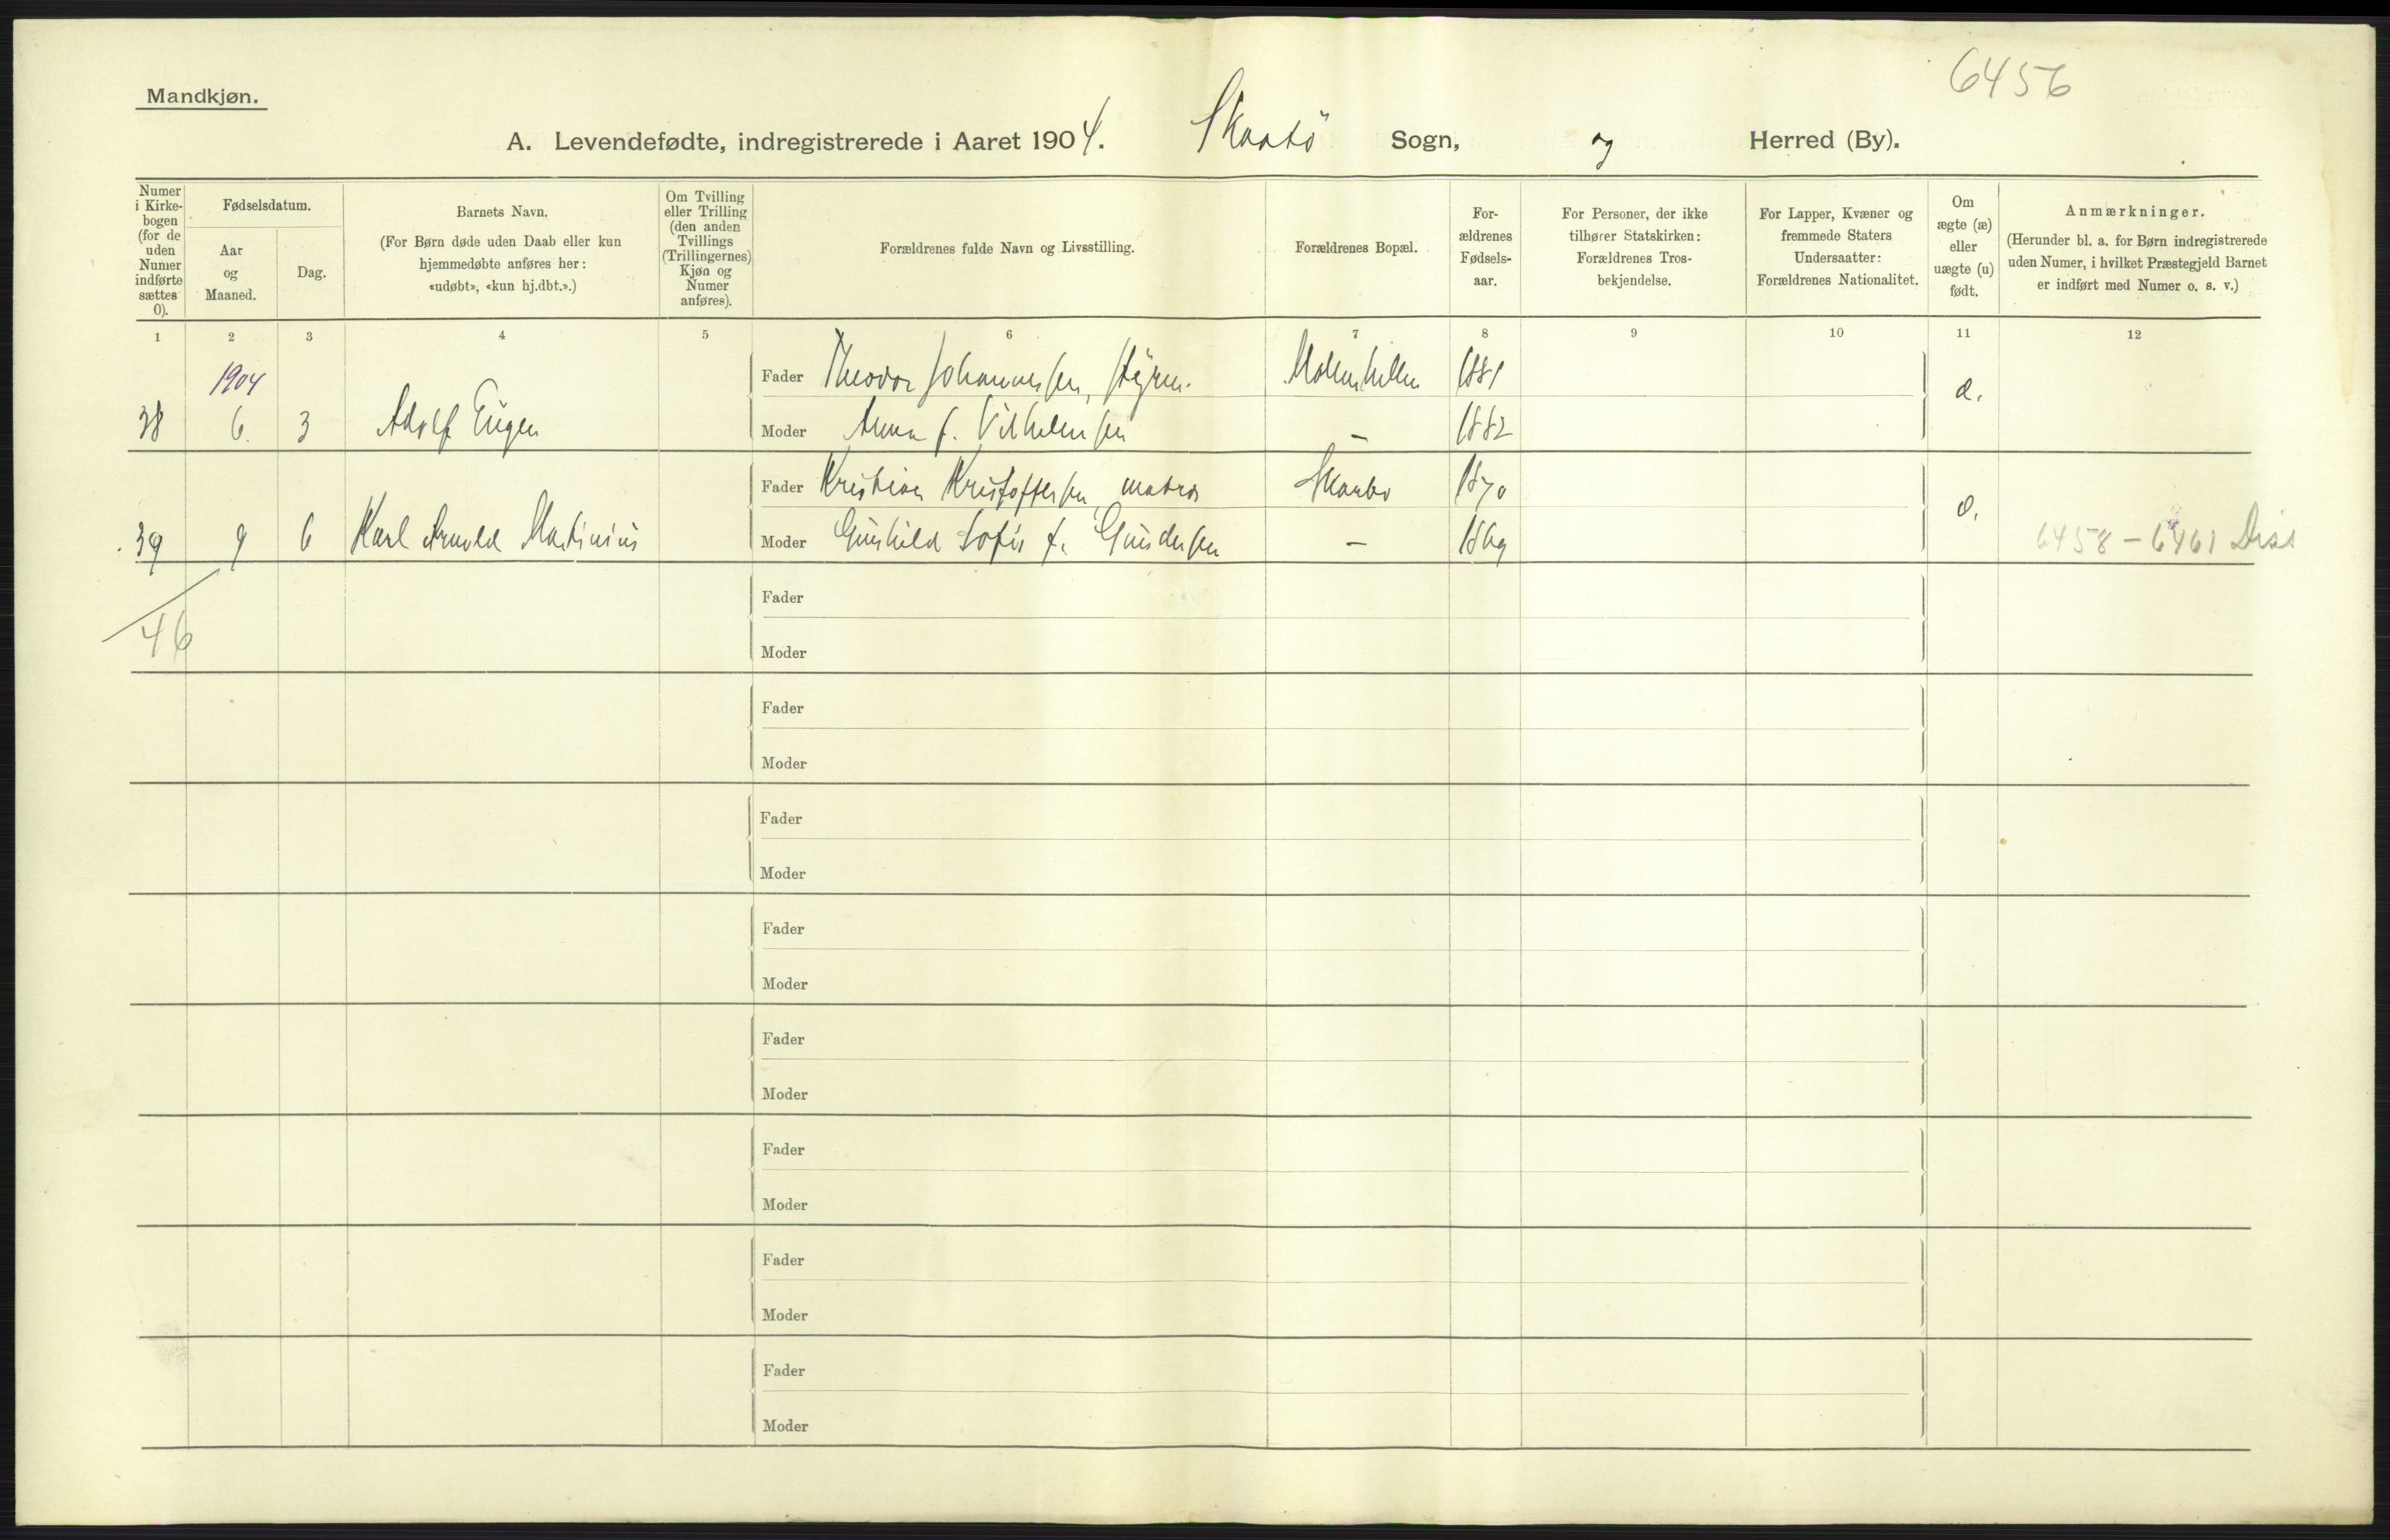 6456
Mandkjøn.
A. Levendefødte, indregistrerede i Aaret 1904. Skaatø Sogn, og Herred (By).
Numer i Kirke-bogen (for de uden Numer indførte sættes 0).
Fødselsdatum.
Aar og Maaned.
Dag.
Barnets Navn.
(For Børn døde uden Daab eller kun hjemmedøbte anføres her: «udøbt», «kun hj.dbt.».)
Om Tvilling eller Trilling (den anden Tvillings (Trillingernes) Kjøn og Numer anføres).
Forældrenes fulde Navn og Livsstilling.
Forældrenes Bopæl.
For-ældrenes Fødsels-aar.
For Personer, der ikke tilhører Statskirken: Forældrenes Tros-bekjendelse.
For Lapper, Kvæner og fremmede Staters Undersaatter: Forældrenes Nationalitet.
Om ægte (æ) eller uægte (u) født.
Anmærkninger.
(Herunder bl. a. for Børn indregistrerede uden Numer, i hvilket Præstegjeld Barnet er indført med Numer o. s. v.)
1 2 3 4 5 6 7 8 9 10 11 12
1904
Fader Theodor Johannessen, styrm. 1881
38 6. 3 Adolf Eugen
Moder Anna f. Vilhelmsen — 1882
Fader Kristian Kristoffersen, matros 1870
39 9 6 Karl Arnold Martinius
Moder Gunhild Sofie f. Gundersen — 1869
6458 – 6461 Diss
46
Fader
Moder
Fader
Moder
Fader
Moder
Fader
Moder
Fader
Moder
Fader
Moder
Fader
Moder
Fader
Moder